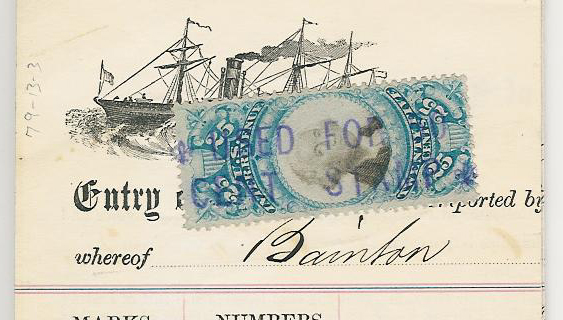 79-13-3
U.S.
INTER. REVENUE
SEVENTY
CENTS
USED FOR
CENT STAMP
Entry
ported by
whereof Bainton
MARKS NUMBERS